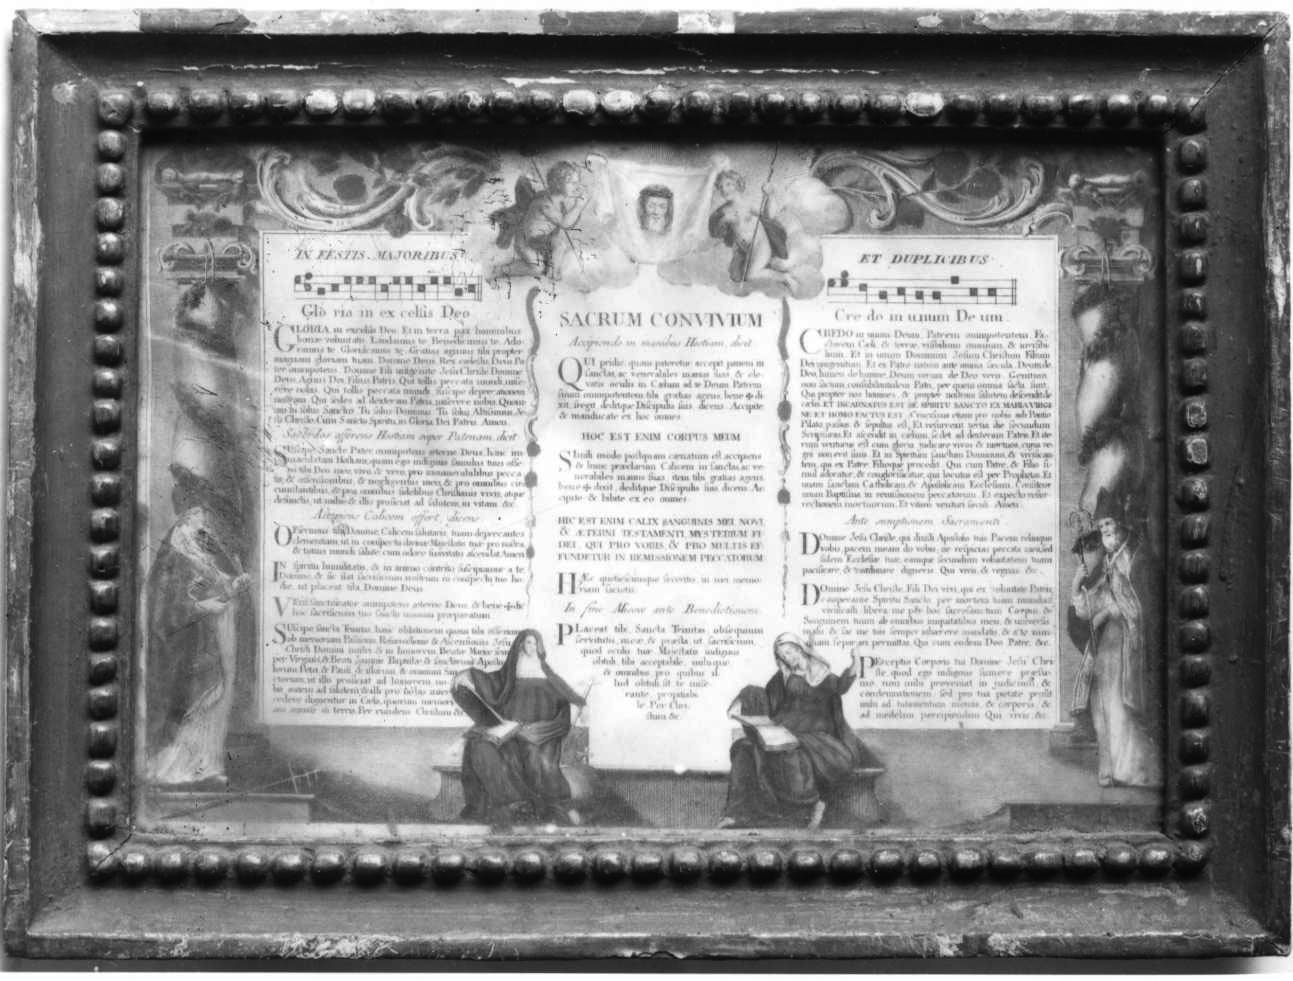 IN FESTIS MAJORIBUS
Glo ria in ex celsis Deo
GLORIA in excelsis Deo. Et in terra pax hominibus
bonæ voluntatis. Laudamus te. Benedicimus te. Ado-
ramus te. Glorificamus te. Gratias agimus tibi propter
magnam gloriam tuam. Domine Deus, Rex cœlestis, Deus Pa-
ter omnipotens. Domine Fili unigenite Jesu Christe. Domine
Deus, Agnus Dei, Filius Patris. Qui tollis peccata mundi, mise-
rere nobis. Qui tollis peccata mundi, suscipe deprecationem
nostram. Qui sedes ad dexteram Patris, miserere nobis. Quoni-
am tu solus Sanctus. Tu solus Dominus. Tu solus Altissimus, Je-
su Christe. Cum Sancto Spiritu, in Gloria Dei Patris. Amen.
Sacerdos offerens Hostiam super Patenam, dicit
SUscipe Sancte Pater omnipotens æterne Deus, hanc im-
maculatam Hostiam, quam ego indignus famulus tuus offe-
ro tibi Deo meo vivo, & vero, pro innumerabilibus pecca-
tis, & offensionibus, & negligentiis meis, & pro omnibus cir-
cumstantibus, & pro omnibus fidelibus Christianis vivis, atque
defunctis, ut mihi, & illis proficiat ad salutem in vitam &c.
Accipiens Calicem offert, dicens
OFferimus tibi Domine Calicem salutaris, tuam deprecantes
clementiam, ut in conspectu divinæ Majestatis tuæ pro nostra,
& totius mundi salute cum odore suavitatis ascendat. Amen
IN spiritu humilitatis, & in animo contrito suscipiamur a te
Domine, & sic fiat sacrificium nostrum in conspectu tuo ho-
die, ut placeat tibi Domine Deus
VEni sanctificator omnipotens æterne Deus, & bene✠dic
hoc sacrificium tuo sancto nomini præparatum.
SUscipe sancta Trinitas hanc oblationem, quam tibi offerimus
ob memoriam Passionis, Resurrectionis, & Ascensionis Jesu
Christi Domini nostri, & in honorem Beatæ Mariæ sem-
per Virginis, & Beati Joannis Baptistæ, & sanctorum Aposto-
lorum Petri, & Pauli, & istorum, & omnium San
ctorum, ut illis proficiat ad honorem no
bis autem ad salutem & illi pro nobis inter
cedere dignentur in Cœlis, quorum memori
am agimus in terris. Per eundem Christum &c.
SACRUM CONVIVIUM
Accipiendo in manibus Hostiam, dicit
QUI pridie, quam pateretur, accepit panem in
sanctas, ac venerabiles manus suas, & ele-
vatis oculis in Cœlum ad te Deum Patrem
suum omnipotentem tibi gratias agens, bene✠di
xit, fregit, deditque Discipulis suis, dicens: Accipite
& manducate ex hoc omnes.
HOC EST ENIM CORPUS MEUM
Simili modo postquam cœnatum est, accipiens
& hunc præclarum Calicem in sanctas, ac ve-
nerabiles manus suas, item tibi gratias agens
bene✠dixit, deditque Discipulis suis, dicens: Ac
cipite & bibite ex eo omnes
HIC EST ENIM CALIX SANGUINIS MEI, NOVI,
& ÆTERNI TESTAMENTI, MYSTERIUM FI-
DEI, QUI PRO VOBIS, & PRO MULTIS EF-
FUNDETUR IN REMISSIONEM PECCATORUM
HÆc quotiescumque feceritis, in mei memo-
riam facietis.
In fine Missæ ante Benedictionem
PLaceat tibi, Sancta Trinitas, obsequium
servitutis meæ, & præsta, ut sacrificium,
quod oculis tuæ Majestatis indignus
obtuli, tibi acceptabile, mihique
& omnibus, pro quibus il-
lud obtuli, sit, te mise-
rante, propitiabi-
le. Per Chri-
stum &c.
ET DUPLICIBUS
Cre do in unum De um
CREDO in unum Deum, Patrem omnipotentem, Fa-
ctorem Cœli, & terræ, visibilium omnium, & invisibi-
lium. Et in unum Dominum Jesum Christum Filium
Dei unigenitum. Et ex Patre natum ante omnia sæcula. Deum de
Deo, lumen de lumine, Deum verum de Deo vero. Genitum,
non factum, consubstantialem Patri, per quem omnia facta sunt.
Qui propter nos homines, & propter nostram salutem descendit de
cœlis. ET INCARNATUS EST DE SPIRITU SANCTO EX MARIA VIRGI-
NE ET HOMO FACTUS EST. Crucifixus etiam pro nobis sub Pontio
Pilato passus, & sepultus est. Et resurrexit tertia die secundum
Scripturas. Et ascendit in cœlum, sedet ad dexteram Patris. Et ite-
rum venturus est cum gloria judicare vivos, & mortuos, cujus re-
gni non erit finis. Et in Spiritum sanctum Dominum, & vivifican-
tem, qui ex Patre, Filioque procedit. Qui cum Patre, & Filio si-
mul adoratur, & conglorificatur, qui locutus est per Prophetas. Et
unam Sanctam Catholicam, & Apostolicam Ecclesiam. Confiteor
unum Baptisma in remissionem peccatorum. Et expecto resur-
rectionem mortuorum. Et vitam venturi sæculi. Amen.
Ante sumptionem Sacramenti
DOmine Jesu Christe, qui dixisti Apostolis tuis: Pacem relinquo
vobis, pacem meam do vobis, ne respicias peccata mea, sed
fidem Ecclesiæ tuæ, eamque secundum voluntatem tuam
pacificare, & coadunare digneris. Qui vivis, & regnas &c.
DOmine Jesu Christe, Fili Dei vivi, qui ex voluntate Patris,
cooperante Spiritu Sancto per mortem tuam mundum
vivificasti, libera me per hoc sacrosanctum Corpus, &
Sanguinem tuum ab omnibus iniquitatibus meis, & universis
malis, & fac me tuis semper inhærere mandatis, & a te num-
quam separari permittas. Qui cum eodem Deo Patre, &c.
PErceptio Corporis tui Domine Jesu Chri-
ste, quod ego indignus sumere præsu-
mo, non mihi proveniat in judicium, &
condemnationem, sed pro tua pietate prosit
mihi ad tutamentum mentis, & corporis, &
ad medelam percipiendam. Qui vivis, &c.